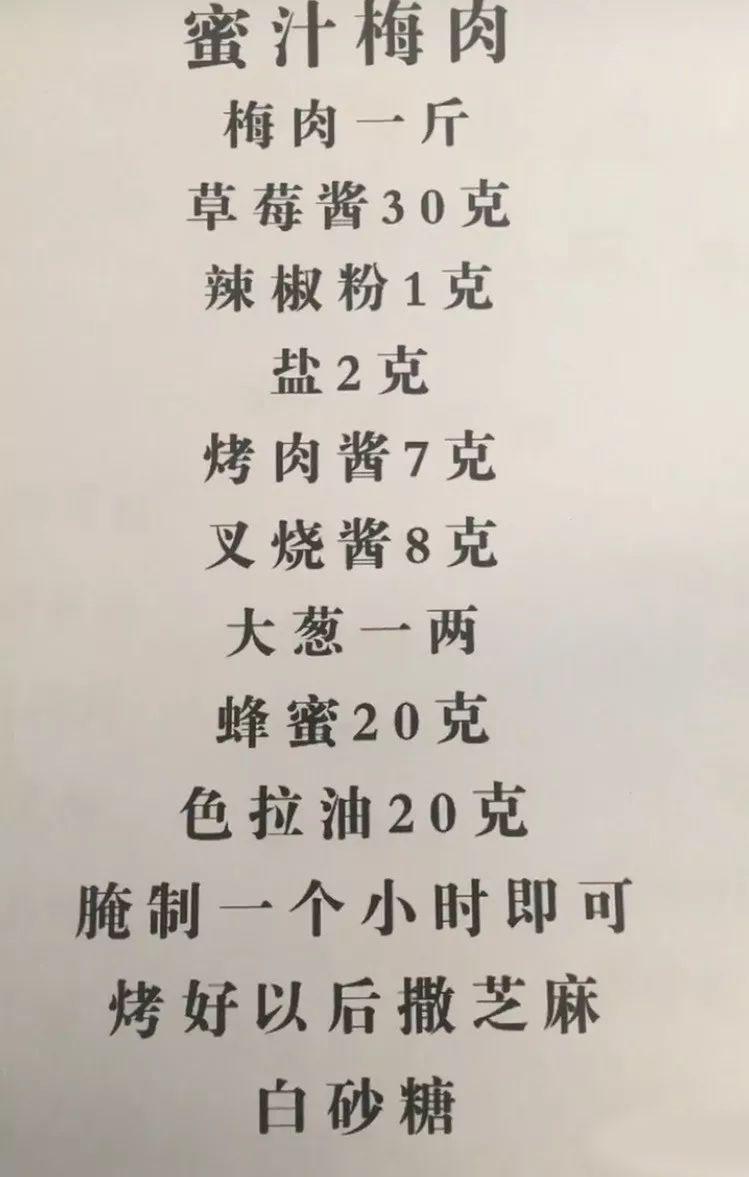 蜜汁梅肉
梅肉一斤
草莓酱30克
辣椒粉1克
盐2克
烤肉酱7克
叉烧酱8克
大葱一两
蜂蜜20克
色拉油20克
腌制一个小时即可
烤好以后撒芝麻
白砂糖